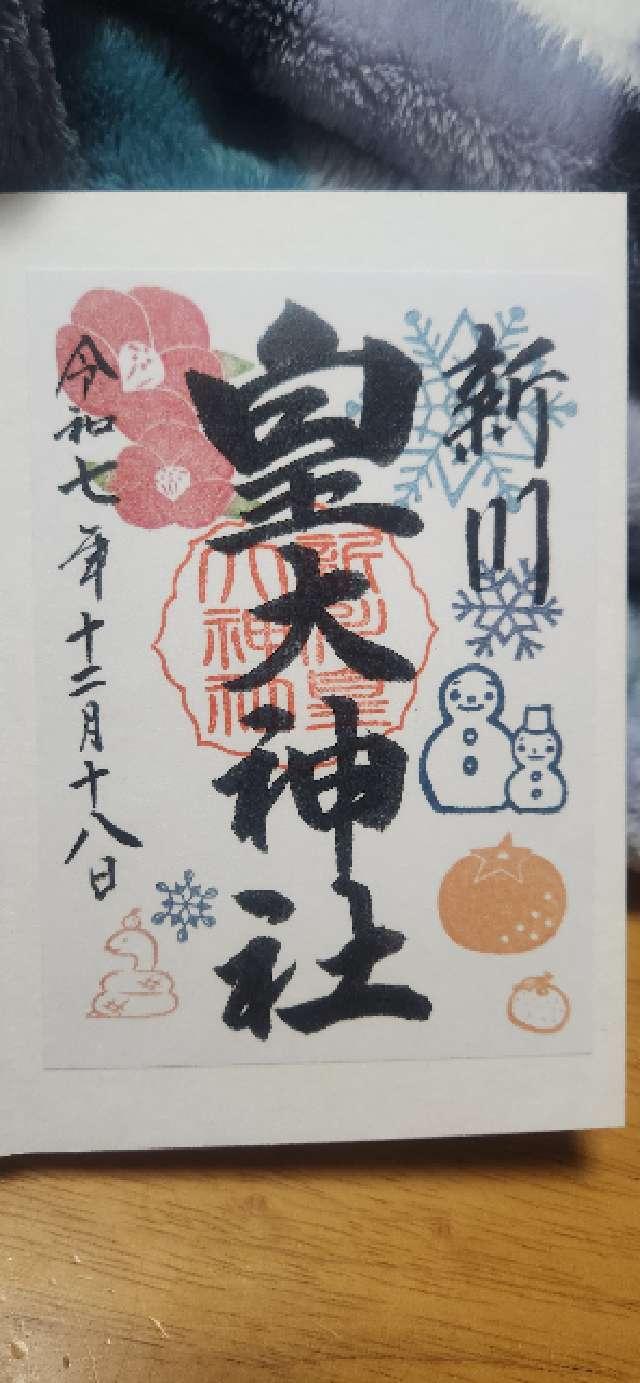 新川
皇大神社
新川皇
大神社
令和七年十二月十八日